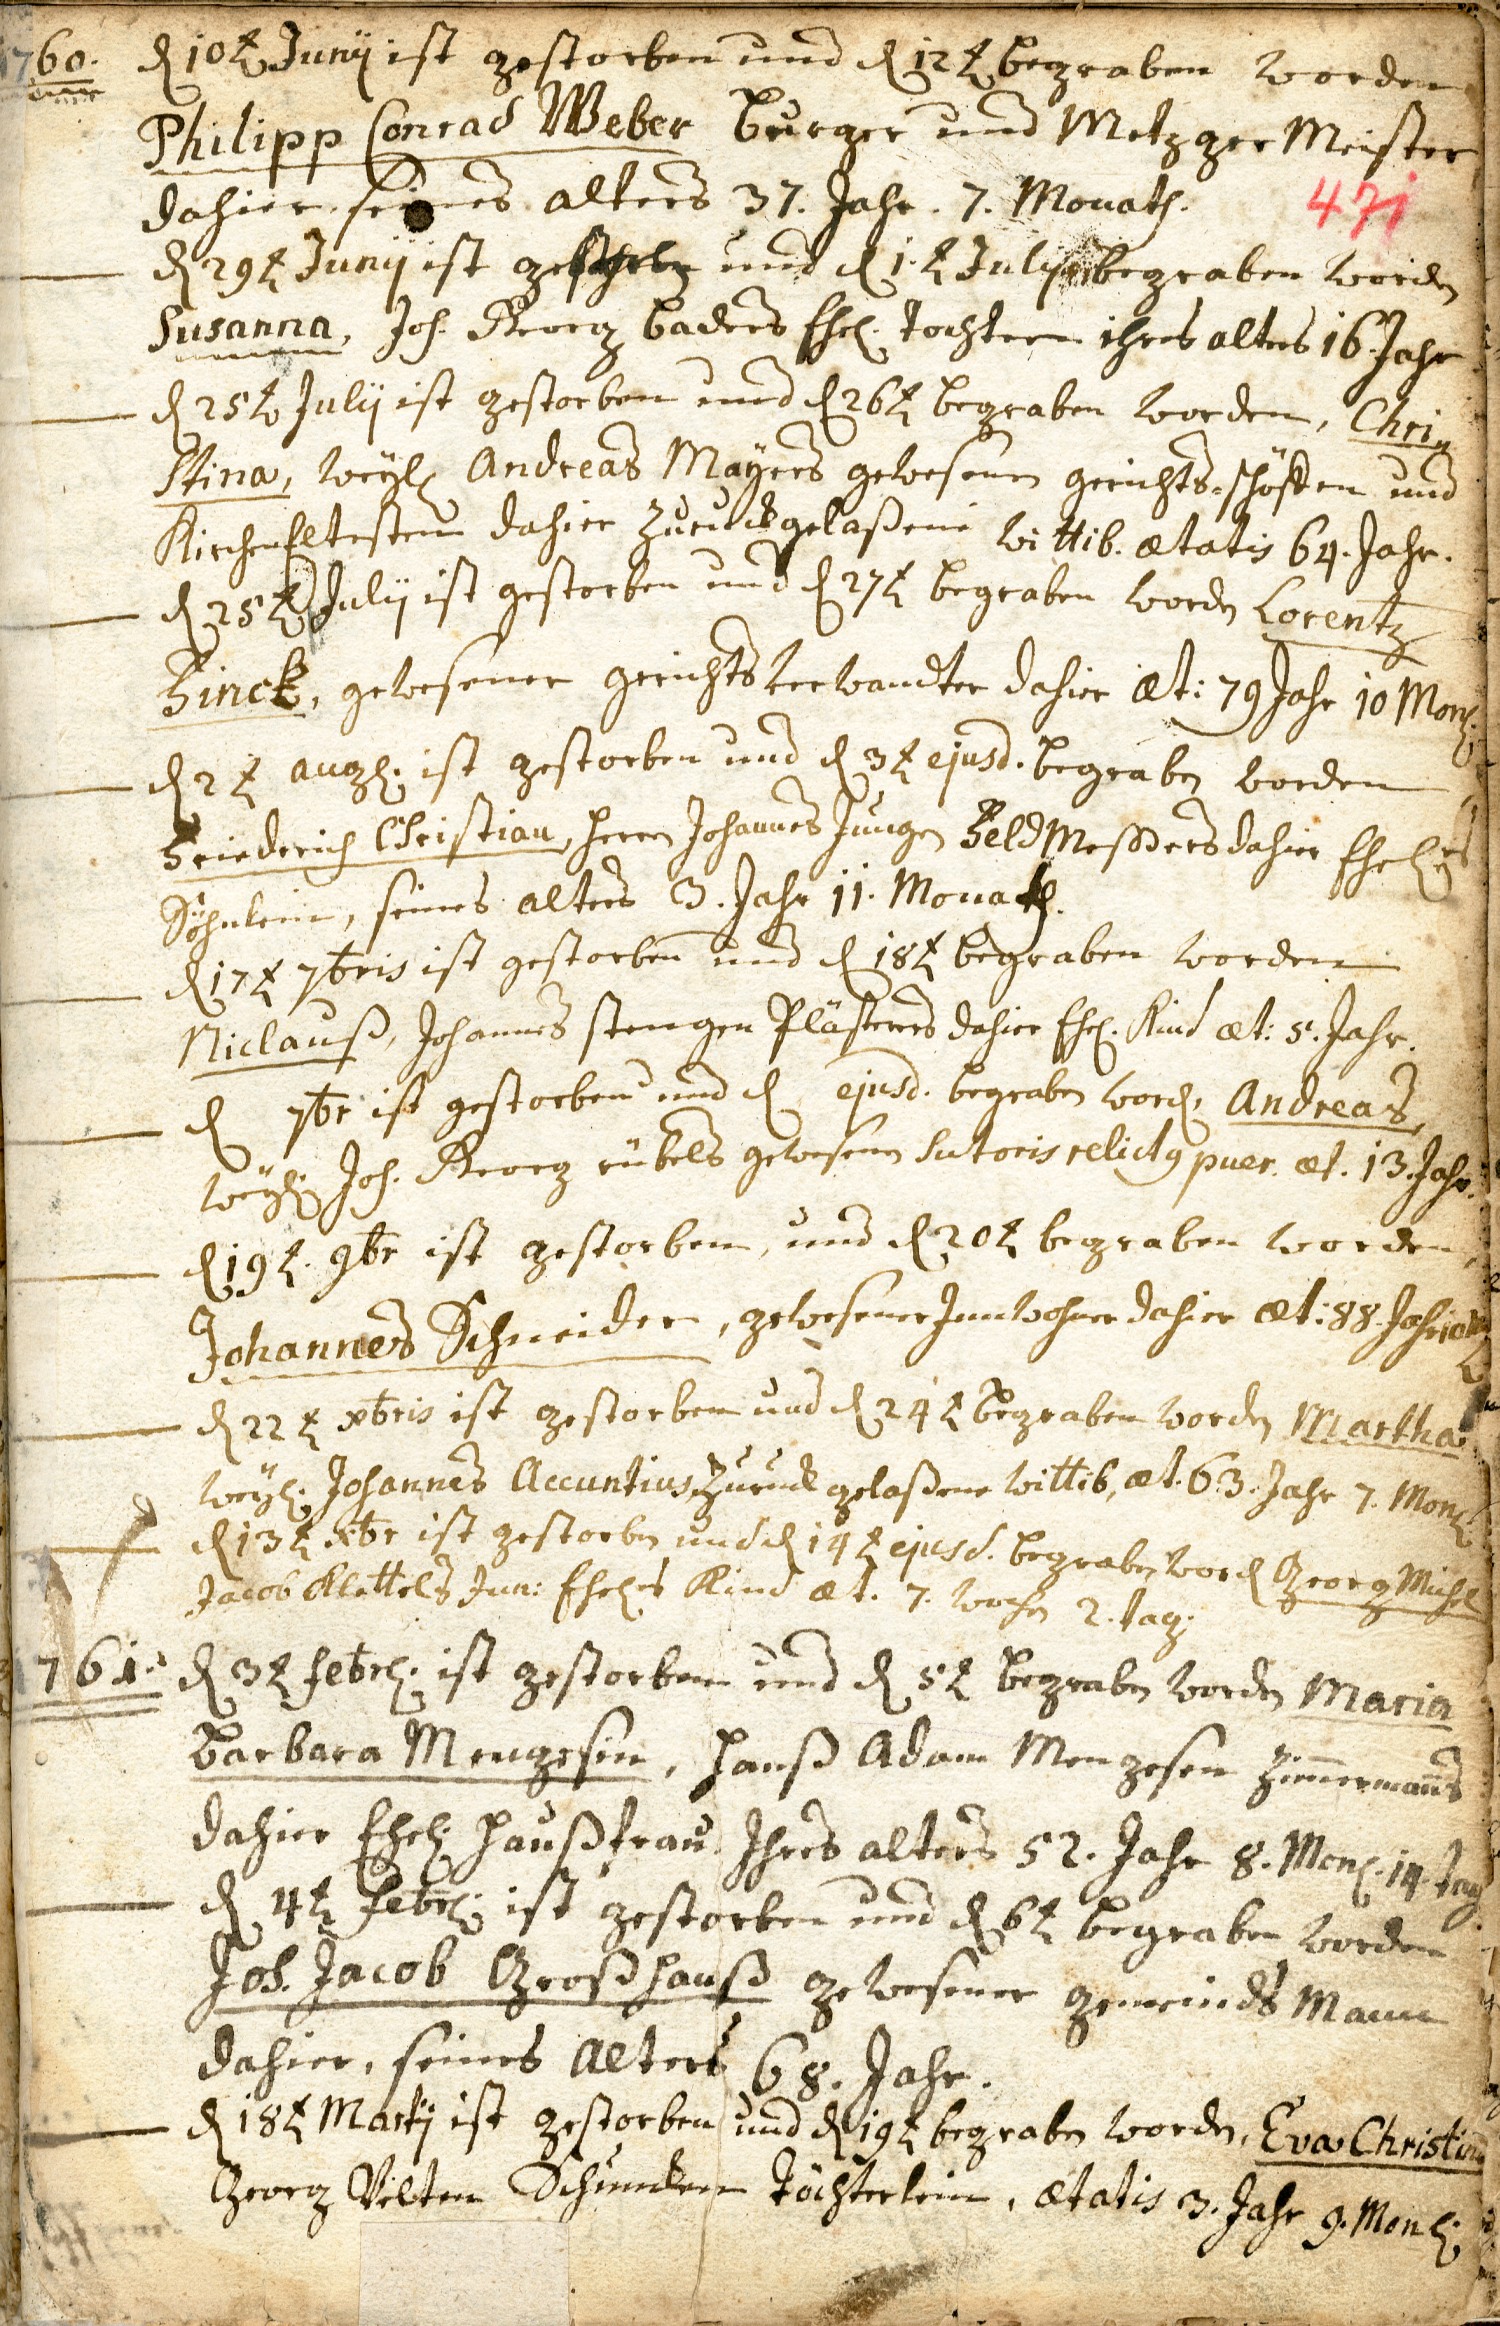 1760. d 10t Junij ist gestorben und d 12t begraben worden
Philipp Conrad Weber burger und Metzger Meister
dahier seines alters 37. Jahr. 7. Monath.
471
d 29t Junij ist und d 1.t Julij begraben worden
Susanna, Joh. Georg baders Ehel. tochter ihres alters 16. Jahr
d 25t Julij ist gestorben und d 26t begraben worden, Chri
stina, weyl. Andreas Mayers gewesenen gerichts-schöffen und
Kirchen Eltesten dahier zurückgelaßene wittib. ætatis 64. Jahr.
d 25t Julij ist gestorben und d 27t begraben worden Lorentz
Finck, gewesener gerichts verwandter dahier æt: 79 Jahr 10 Mon.
d 2t aug. ist gestorben und d 3t ejusd. begraben worden
Friederich Christian, herrn Johannes Jungen Feld Meßers dahier Ehel.
Söhnlein, seines alters 3. Jahr 11. Monath.
d 17t 7bris ist gestorben und d 18t begraben worden
Niclauß, Johannes stengen Plästerers dahier Ehel. Kind æt: 5. Jahr.
d 7br ist gestorben und d ejusd. begraben word. Andreas,
weyl. Joh. Georg rübels gewesenen Sutoris relict9 puer. æt. 13. Jahr.
d 19t. 9br ist gestorben, und d 20t begraben worden,
Johannes Schneider, gewesener Innwohner dahier æt: 88. Jahr 10
d 22t xbris ist gestorben und d 24t begraben worden Martha
weyl. Johannes Accuntius zurück gelaßene wittib, æt. 63. Jahr 7. Mon.
d 13t xbr ist gestorben und d 14t ejusd. begraben word Georg Michel
Jacob Klettels Jun: Ehel.s Kind æt. 7. wochen 2. tag.
1761. d 3t febr. ist gestorben und d 5t begraben worden Maria
Barbara Mengesin, hanß Adam Mengesen Zim̄ermañs
dahier Ehel. haußfrau Ihres alters 52. Jahr 8. Mon. 14. tag
d 4t febr. ist gestorben und d 6t begraben worden
Joh. Jacob Großhanß gewesener gemeinds Mann
dahier, seines Alters 68. Jahr.
d 18t Martij ist gestorben und d 19t begraben worden, Eva Christina
Georg Velten Schuncken töchterlein, ætatis 3. Jahr 9. Mon.